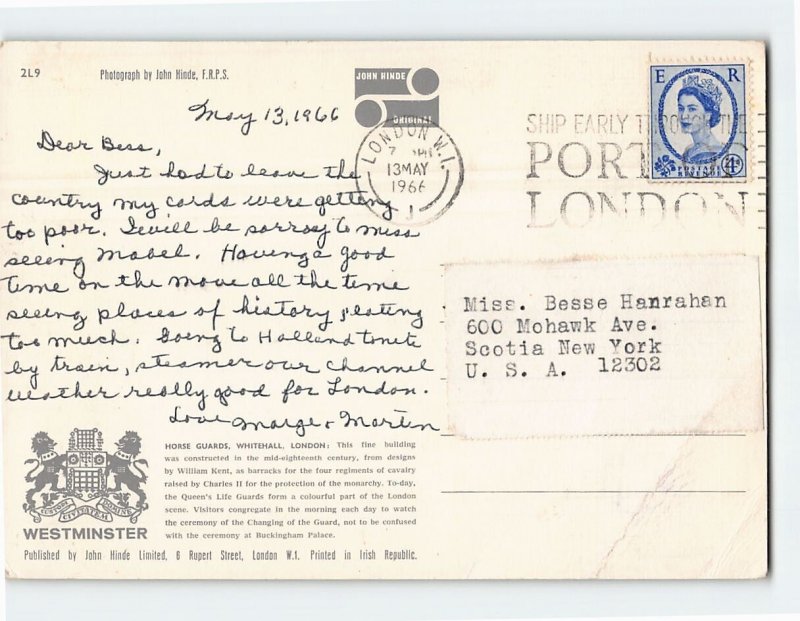 2L9
Photograph by John Hinde, F.R.P.S.
JOHN HINDE
ORIGINAL
May 13, 1966
Dear Bess,
Just had to leave the
country my cards were getting
too poor. I will be sorry to miss
seeing Mabel. Having a good
time on the move all the time
seeing places of history, eating
too much. Going to Holland tonite
by train, steamer our channel
weather really good for London.
Love Marge + Martin
LONDON W.1.
13 MAY
1966
J
SHIP EARLY THROUGH THE
PORT OF
LONDON
E R
POSTAGE
REVENUE
4D
Miss. Besse Hanrahan
600 Mohawk Ave.
Scotia New York
U. S. A. 12302
CUSTODI CIVITATEM DOMINE
WESTMINSTER
HORSE GUARDS, WHITEHALL, LONDON: This fine building
was constructed in the mid-eighteenth century, from designs
by William Kent, as barracks for the four regiments of cavalry
raised by Charles II for the protection of the monarchy. To-day,
the Queen's Life Guards form a colourful part of the London
scene. Visitors congregate in the morning each day to watch
the ceremony of the Changing of the Guard, not to be confused
with the ceremony at Buckingham Palace.
Published by John Hinde Limited, 6 Rupert Street, London W.1. Printed in Irish Republic.